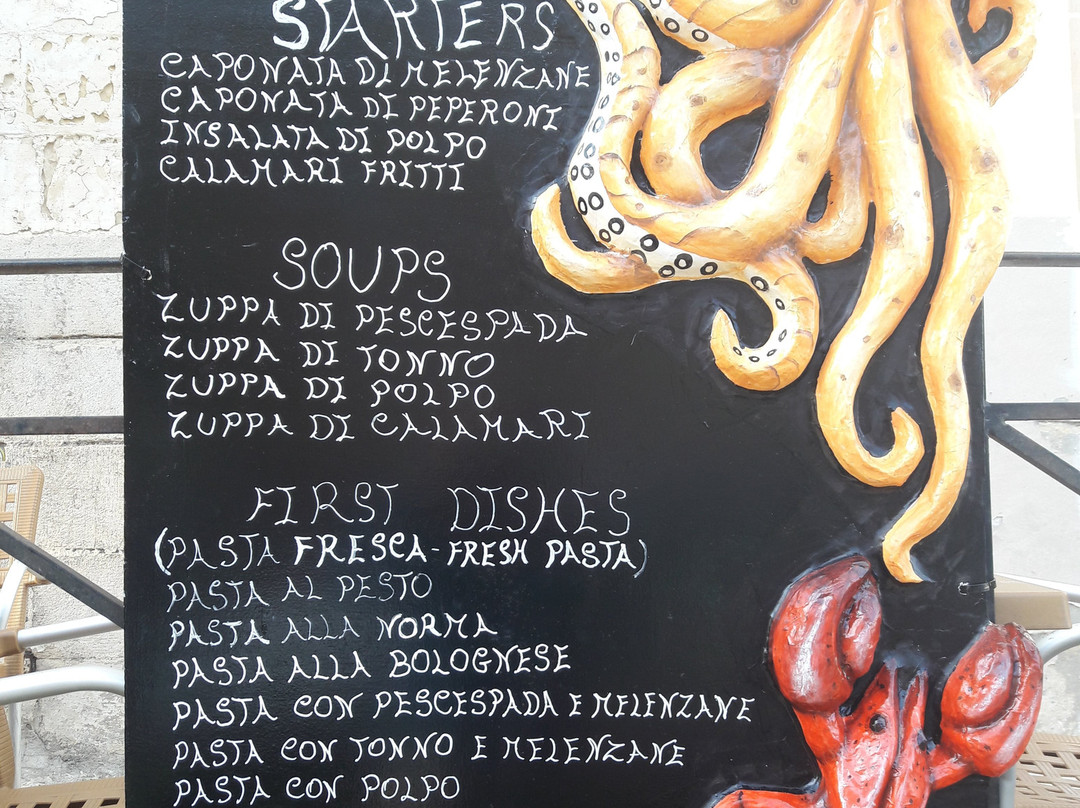 STARTERS
CAPONATA DI MELENZANE
CAPONATA DI PEPERONI
INSALATA DI POLPO
CALAMARI FRITTI
SOUPS
ZUPPA DI PESCESPADA
ZUPPA DI TONNO
ZUPPA DI POLPO
ZUPPA DI CALAMARI
FIRST DISHES
(PASTA FRESCA - FRESH PASTA)
PASTA AL PESTO
PASTA ALLA NORMA
PASTA ALLA BOLOGNESE
PASTA CON PESCESPADA E MELENZANE
PASTA CON TONNO E MELENZANE
PASTA CON POLPO